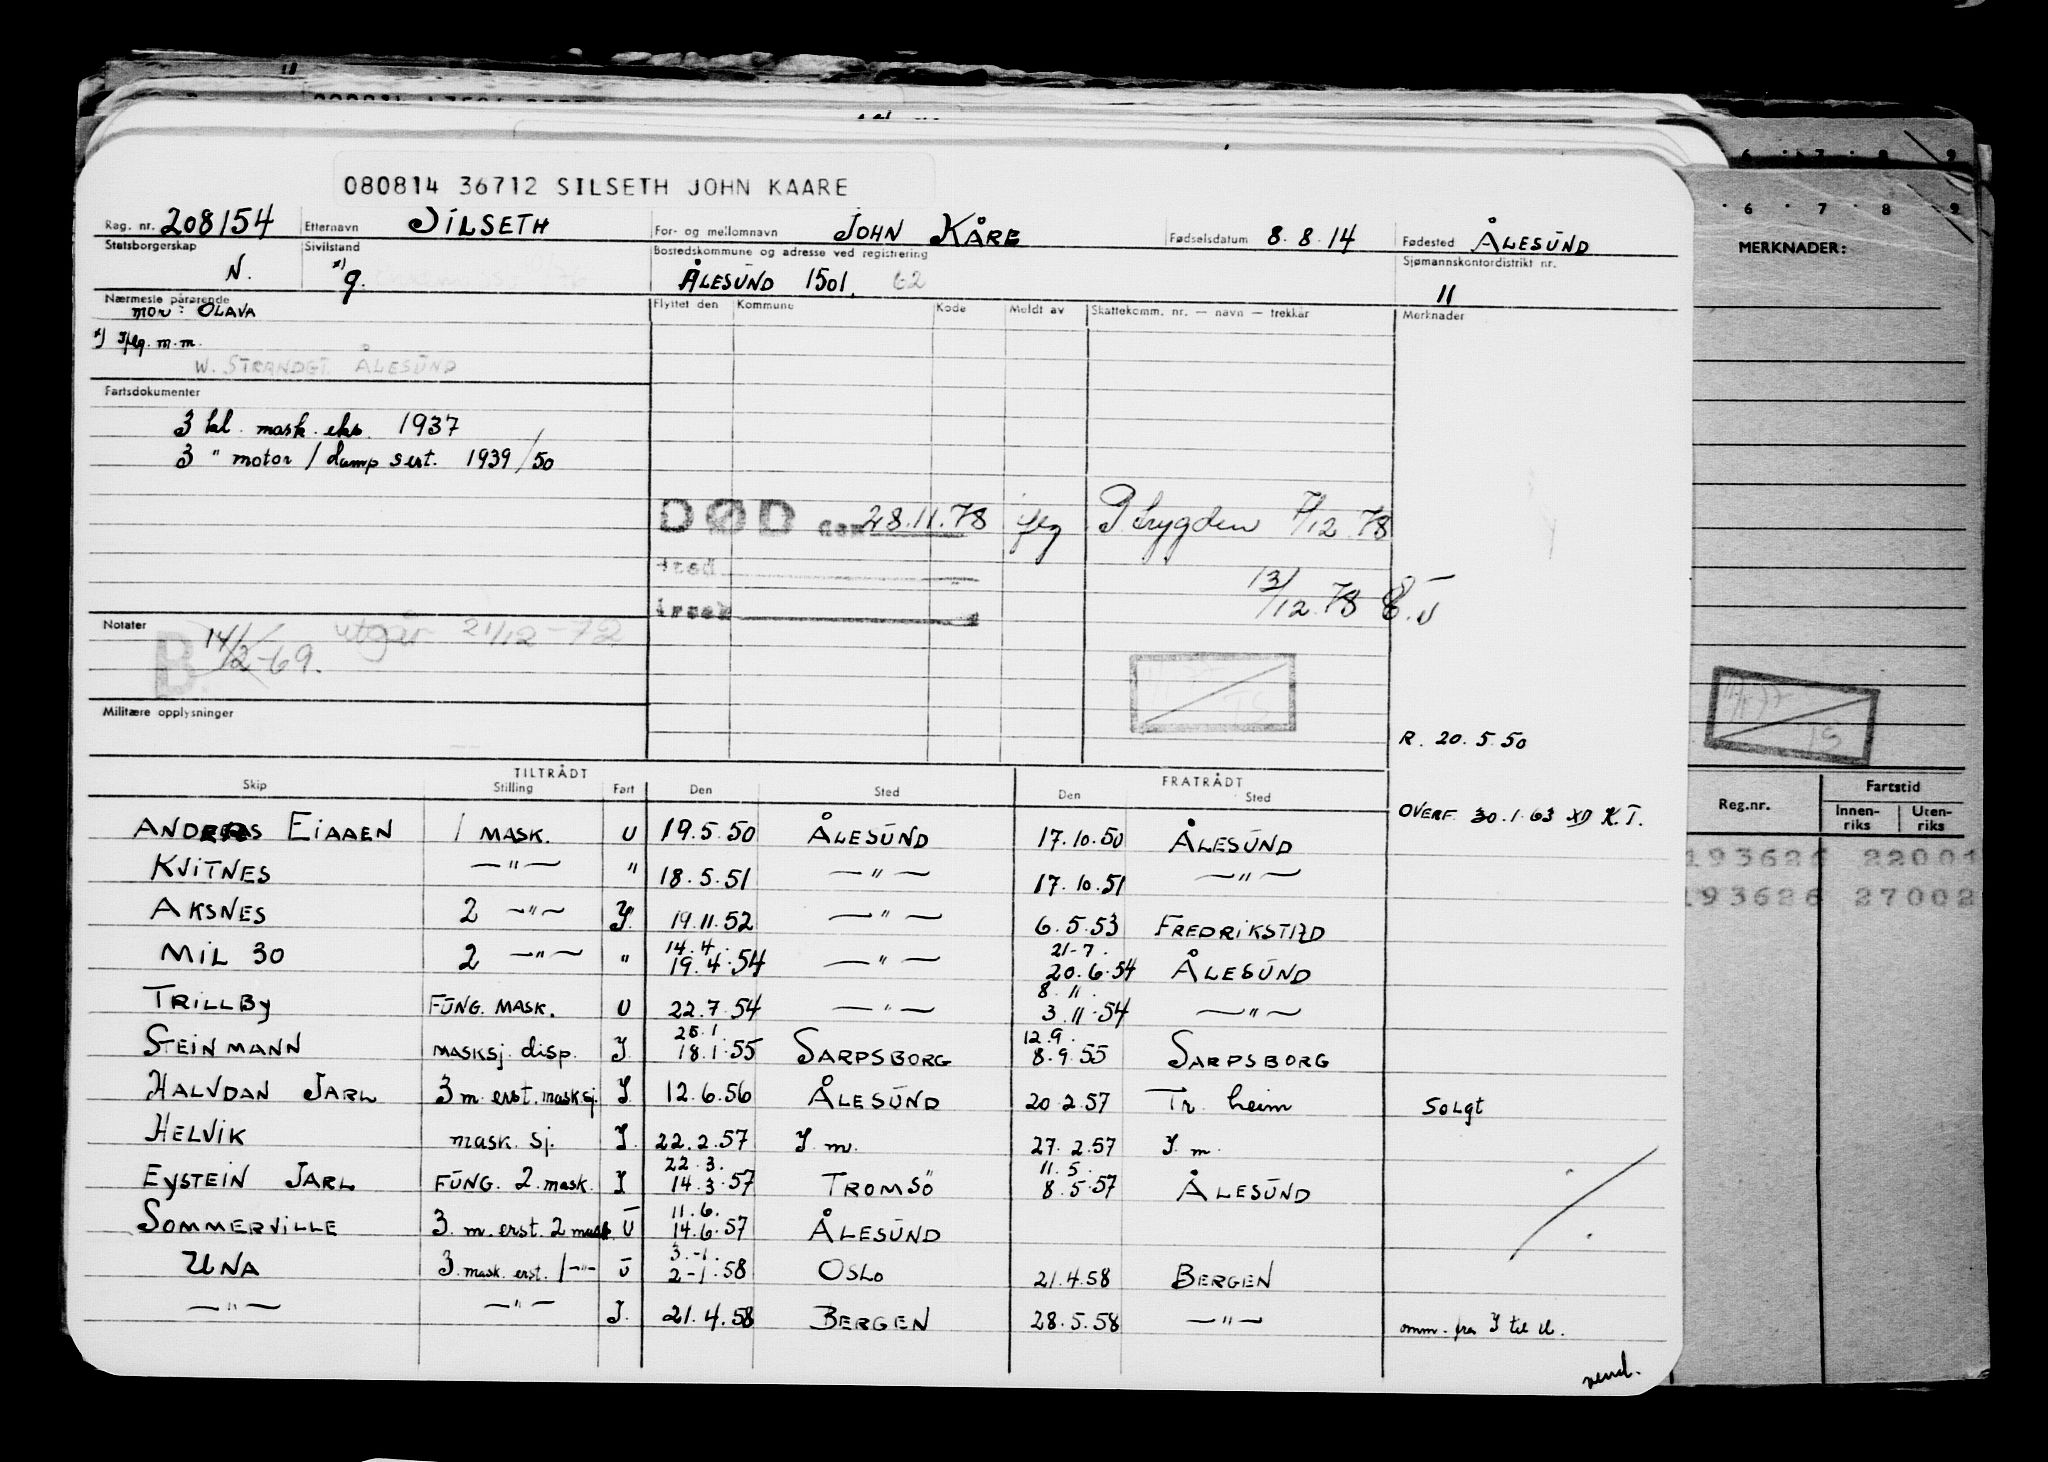 080814 36712 SILSETH JOHN KAARE
Reg. nr. 208154 Etternavn SILSETH For- og mellomnavn JOHN KÅRE Fødselsdatum 8.8.14 Fødested ÅLESUND
Statsborgerskap N. Sivilstand x) g. Bostedskommune og adresse ved registrering ÅLESUND 1501. 62 Sjømannskontordistrikt nr. 11
Nærmeste pårørende Flyttet den Kommune Kode Meldt av Skattekomm. nr. — navn — trekkår Merknader
mor: OLAVA
x) Iflg. m.m.
W. STRANDGT. ÅLESUND
Fartsdokumenter
3 kl. mask. eks. 1937
3 " motor / damp sert. 1939/50
DØD den 28.11.78 iflg P trygden 7/12 78
sted
årsak
13/12.78
Notater
B. 14/2-69. utgår 21/12-72
Militære opplysninger
TS
R. 20.5.50
TILTRÅDT FRATRÅDT
Skip Stilling Fart Den Sted Den Sted
OVERF. 30.1.63 K.T.
ANDERS EIAAEN 1 MASK. U 19.5.50 ÅLESUND 17.10.50 ÅLESUND
KVITNES —"— " 18.5.51 —"— 17.10.51 —"—
AKSNES 2 —"— I. 19.11.52 —"— 6.5.53 FREDRIKSTAD
MIL 30 2 —"— " 14.4. 19.4.54 —"— 21-7. 20.6.54 ÅLESUND
TRILLBY FUNG. MASK. U 22.7.54 —"— 8.11. 3.11.54 —"—
STEINMANN MASKSJ. disp. I. 25.1. 18.1.55 SARPSBORG 12.9. 8.9.55 SARPSBORG
HALVDAN JARL 3 m. erst. masksj. I. 12.6.56 ÅLESUND 20.2.57 Tr. heim Solgt
HELVIK mask. sj. I. 22.2.57 I. m. 27.2.57 I. m.
EYSTEIN JARL FUNG. 2. mask. I 22.3. 14.3.57 TROMSÖ 11.5. 8.5.57 ÅLESUND
SOMMERVILLE 3. m. erst. 2 mask. U 11.6. 14.6.57 ÅLESUND
UNA 3. mask. erst. 1 —"— U 3.-1. 2-1.58 OSLO 21.4.58 BERGEN
—"— —"— I. 21.4.58 BERGEN 28.5.58 —"— omm. fra I til U.
vend.
6 7 8 9
6 7 8 9
MERKNADER:
TS
Reg.nr. Fartstid
Innen-riks Uten-riks
193626 22001
193626 27002